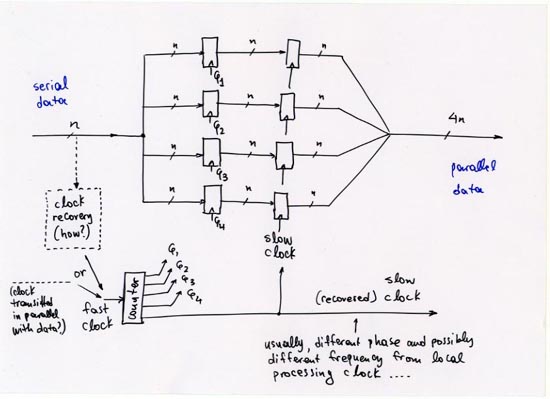 n
n
n
φ1
serial
data
n
n
n
n
φ2
4n
n
n
n
n
φ3
parallel
data
n
n
n
φ4
clock
recovery
(how?)
slow
clock
or
φ1
φ2
φ3
φ4
(clock
transmitted
in parallel
with data?)
fast
clock
counter
slow
(recovered) clock
usually, different phase and possibly
different frequency from local
processing clock ....